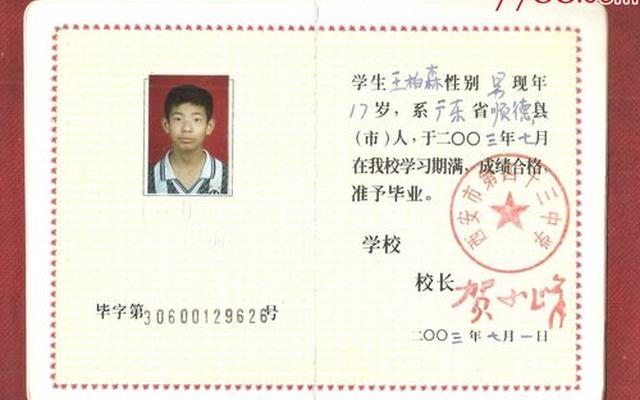 学生王柏森性别男现年
17岁，系广东省顺德县
（市）人，于二〇〇三年七月
在我校学习期满，成绩合格，
准予毕业。
西安市第四十三中学
学校
校长
毕字第30600129626号
二〇〇三年七月一日